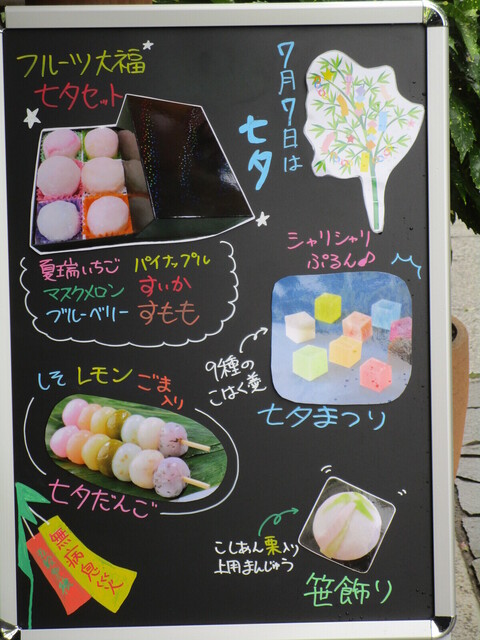 フルーツ大福
七夕セット
7月7日は
七夕
夏瑞いちご パイナップル
マスクメロン すいか
ブルーベリー すもも
シャリシャリ
ぷるん♪
9種の
こはく羹
七夕まつり
しそ レモン ごま
入り
七夕だんご
こしあん栗入り
上用まんじゅう
笹飾り
無病息災